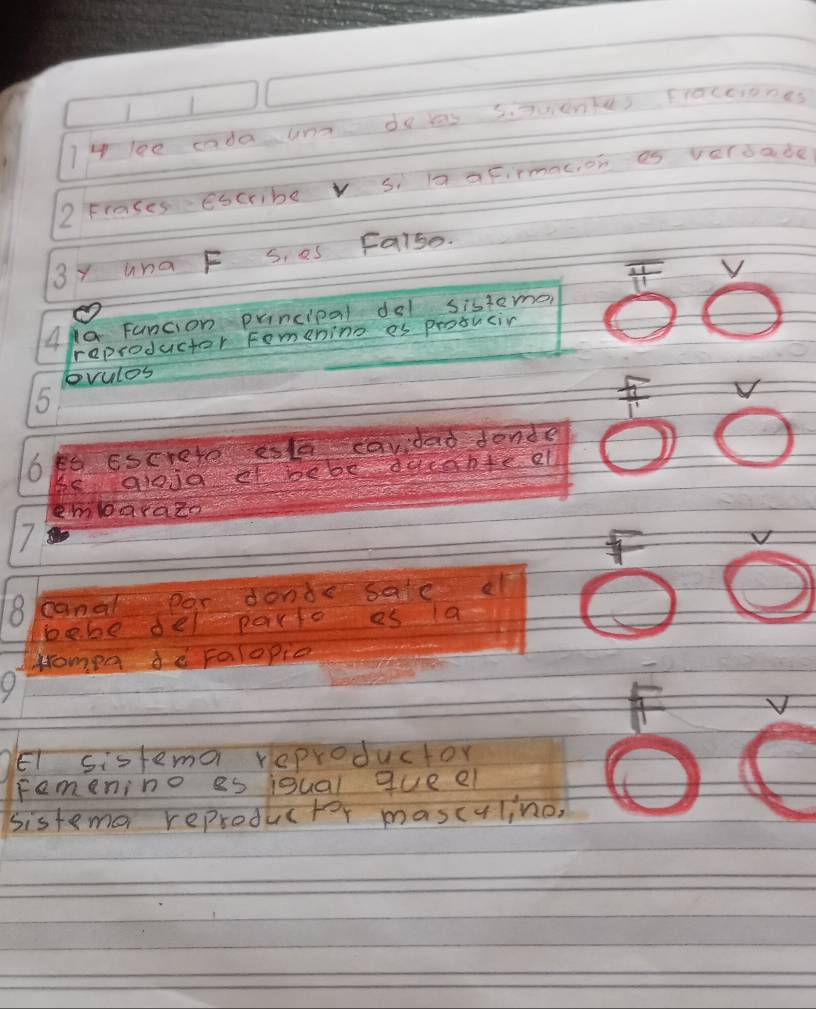 1 4 lee cada una de las siguientes Fracciones
2 Frases escribe V si la afirmación es verdade
3 y una F si es Falso.
F V
4 la Funcion principal del sistema,
reproductor Femenino es producir
ovulos
5
F V
6 es Escreto es la cavidad donde
se aloja el bebe ducante el
embarazo
7
F V
8 canal por donde sale el
bebe del parto es la
trompa de Falopio
9
F V
El sistema reproductor
Femenino es igual que el
sistema reproductor masculino,